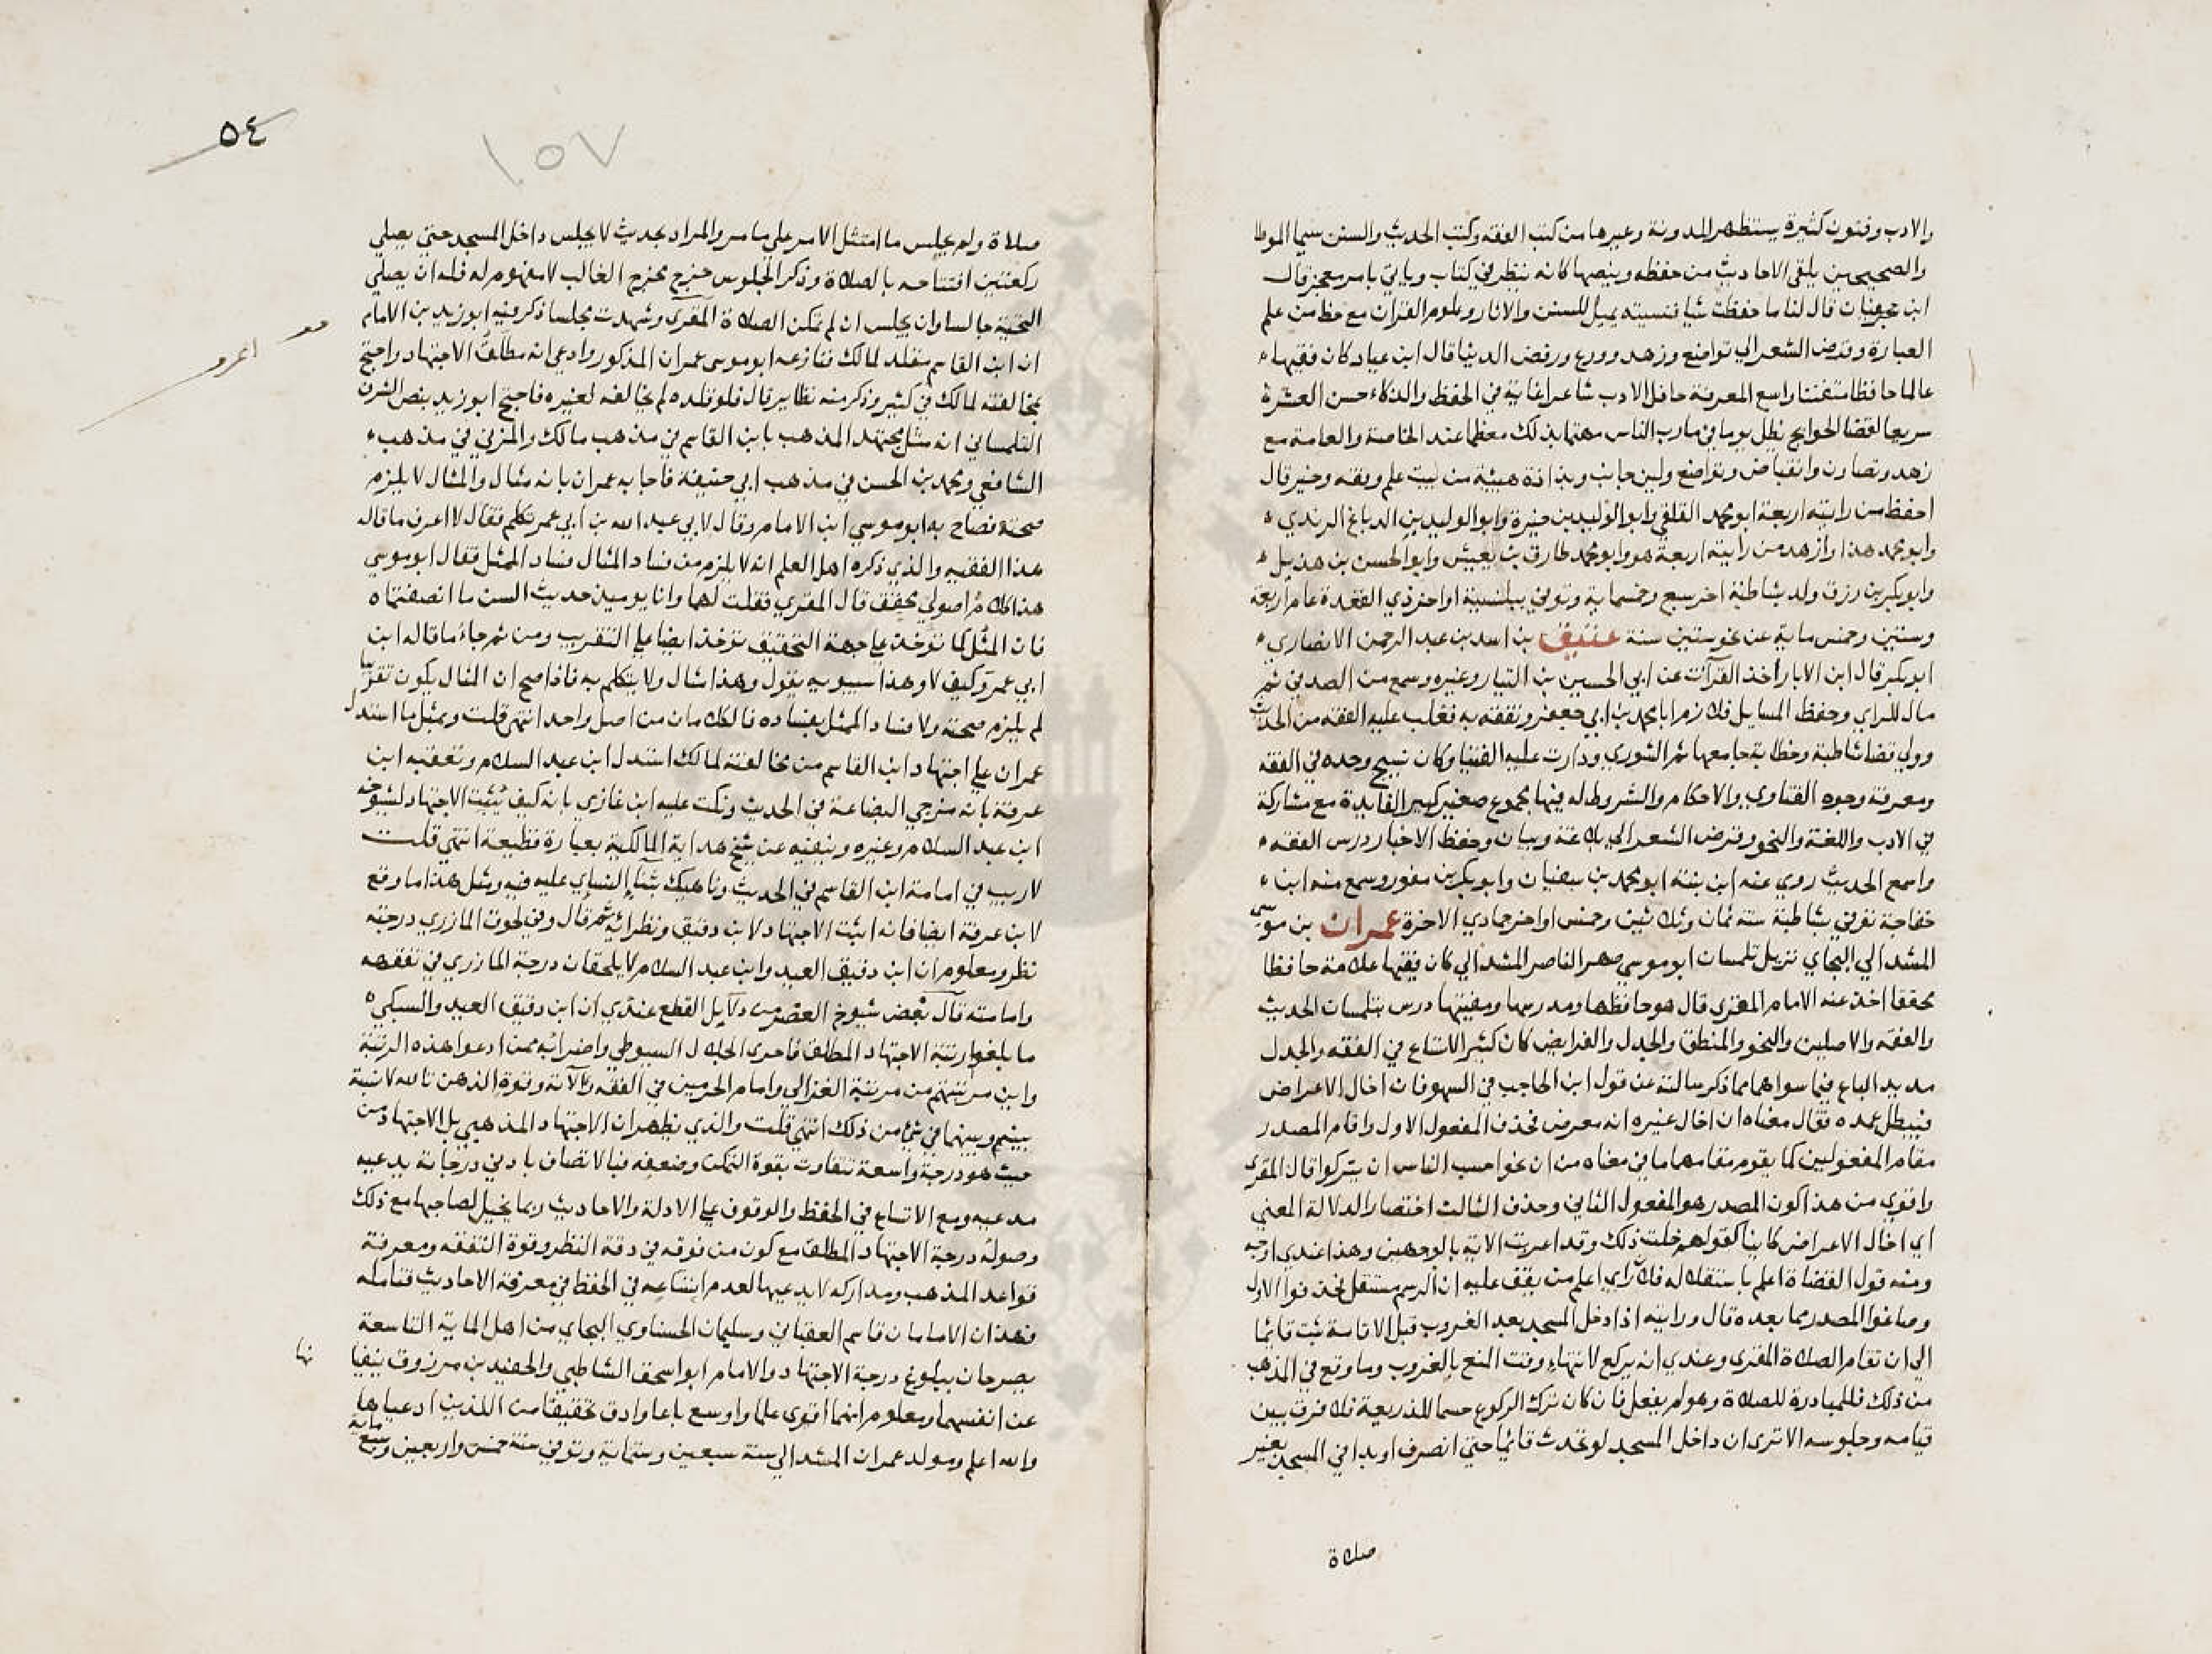 والادب وفنون كثيرة يستظهر المدونة وغيرها من كتب الفقه وكتب الحديث والسنن سيما الموطا
والصحيحين يلقي الاحاديث من حفظه وينصها كانه ينظر في كتاب وياتي بامر معجز قال
ابن قال لنا ما حفظت شيا فنسيته يميل للسنن والاثار وعلوم القران مع حظ من علم
العبارة وقرض الشعر الي تواضع وزهد وورع ورفض الدنيا قال ابن عياد كان فقيها
عالما حافظا متفننا واسع المعرفة حافل الادب شاعرا غاية في الحفظ والذكاء حسن العشرة
سريعا لقضا الحوايج يظل يوما في مارب الناس مهتما بذلك معظما عند الخاصة والعامة مع
زهد وتصاون وانقباض وتواضع ولين جانب وبذاذة هيئة من بيت علم وفقه وخير قال
احفظ من رايته اربعة ابو محمد القلني وابو الوليد بن خيرة وابو الوليد بن الدباغ الرندي
وابو محمد هذا وازهد من رايته اربعة هو وابو محمد طارق بن يعيش وابو الحسن بن هذيل
وابو بكر بن رزق ولد بشاطبة اخر سبع وخمسماية وتوفي ببلنسية اواخر ذي القعدة عام اربعة
وستين وخمس ماية عن نحو ستين سنة عتيق بن اسد بن عبد الرحمن الانصاري
ابو بكر قال ابن الابار اخذ القرآت عن ابي الحسين بن البياز وغيره وسمع من الصدفي ثم
مال للراي وحفظ المسايل فلازم ابا محمد بن ابي جعفر وتفقه به فغلب عليه الفقه من الحديث
وولي قضا شاطبة وخطابة جامعها ثم الشوري ودارت عليه الفتيا وكان نسيج وحده في الفقه
ومعرفة وجوه الفتاوي والاحكام والشروط له فيها مجموع صغير كبير الفايدة مع مشاركة
في الادب واللغة والنحو وقرض الشعر الي بلاغة وبيان وحفظ الاخبار درس الفقه
واسمع الحديث روي عنه ابن بنته ابو محمد بن سفيان وابو بكر بن مفوز وسمع منه ابنا
خفاجة توفي بشاطبة سنة ثمان وثلاثين وخمس اواخر جمادي الاخرة عمران بن موسي
المشدالي البجاي نزيل تلمسان ابو موسي صهر الناصر المشدالي كان فقيها علامة حافظا
محققا اخذ عنه الامام المقري قال هو حافظها ومدرسها ومفتيها درس بتلمسان الحديث
والفقه والاصلين والنحو والمنطق والجدل والفرايض كان كثير الاتساع في الفقه والجدل
مديد الباع فيما سواهما مما ذكر سالته عن قول ابن الحاجب في السهو فان اخال الاعراض
فيبطل عمده فقال معناه ان اخال غيره انه معرض فحذف المفعول الاول واقام المصدر
مقام المفعولين كما يقوم مقامهما ما في معناه من ان نحو احسب الناس ان يتركوا قال المقري
واقوي من هذا كون المصدر هو المفعول الثاني وحذف الثالث اختصارا لدلالة المعني
اي اخال الاعراض كاينا كقولهم خلت ذلك وقد اعربت الاية بالوجهين وهذا عندي اوجه
ومنه قول القضاة اعلم باستقلاله فلان راي اعلم من يقف عليه ان الرسم مستقل فحذفوا الاول
وصاغوا المصدر مما بعده قال ورايته اذا دخل المسجد بعد الغروب قبل الاقامة ثبت قائما
الي ان تقام الصلاة المقري وعندي انه يركع لانتهاء وقت المنع بالغروب وما وقع في المذهب
من ذلك فللمبادرة للصلاة وهو لم يفعل فان كان ترك الركوع حسما للذريعة فلا فرق بين
قيامه وجلوسه الا تري ان داخل المسجد لو تحدث قائما حتي انصرف او بدا في المسجد بغير
صلاة
٥٤
١٥٧
صلاة ولم يجلس ما امتثل الامر علي ما مر والمراد بحديث لا يجلس داخل المسجد حتي يصلي
ركعتين افتتاحه بالصلاة وذكر الجلوس خرج مخرج الغالب لا مفهوم له فله ان يصلي
التحية جالسا وان يجلس ان لم تمكن الصلاة المقري وشهدت مجلسا ذكر فيه ابو زيد بن الامام
ان ابن القاسم مقلد لمالك فنازعه ابو موسي عمران المذكور وادعي انه مطلق الاجتهاد واحتج
بمخالفته لمالك في كثير وذكر منه نظاير قال فلو قلده لم يخالفه لغيره فاحتج ابو زيد بنص الشرف
التلمساني انه مثل مجتهد المذهب بابن القاسم في مذهب مالك والمزني في مذهب
الشافعي ومحمد بن الحسن في مذهب ابي حنيفة فاجابه عمران بانه مثال والمثال لا يلزم
صحته فصاح به ابو موسي ابن الامام وقال لابي عبد الله بن ابي عمر تكلم فقال لا اعرف ما قاله
هذا الفقيه والذي ذكره اهل العلم انه لا يلزم من فساد المثال فساد الممثل فقال ابو موسي
هذا كلام اصولي محقق قال المقري فقلت لهما وانا يوميذ حديث السن ما انصفتماه
فان المثل كما توخذ علي جهة التحقيق توخذ ايضا علي التقريب ومن ثم جاء ما قاله ابن
ابي عمر وكيف لا وهذا سيبويه يقول وهذا مثال ولا يتكلم به فاذا صح ان المثال يكون تقريبا
لم يلزم صحته ولا فساد الممثل بفساده فالكلامان من اصل واحد انتهي قلت وبمثل ما استدل
عمران علي اجتهاد ابن القاسم من مخالفته لمالك استدل ابن عبد السلام وتعقبه ابن
عرفة بانه مزجي البضاعة في الحديث ونكت عليه ابن غازي بانه كيف يثبت الاجتهاد لشيوخه
ابن عبد السلام وغيره وينفيه عن شيخ هداية المالكية بعبارة فظيعة انتهي قلت
لا ريب في امامة ابن القاسم في الحديث وناهيك بثناء النسايي عليه فيه ومثل هذا ما وقع
لابن عرفة ايضا فانه اثبت الاجتهاد لابن دقيق ونظرائه ثم قال وفي لحوق المازري درجته
نظر ومعلوم ان ابن دقيق العيد وابن عبد السلام لا يلحقان درجة المازري في تفقهه
وامامته قال بعض شيوخ العصر من دلايل القطع عندي ان ابن دقيق العيد والسبكي
ما بلغوا رتبة الاجتهاد المطلق فاحري الجلال السيوطي واضرابه ممن ادعوا هذه الرتبة
واين مرتبتهم من مرتبة الغزالي وامام الحرمين في الفقه والآته وقوة الذهن تالله لا نسبة
بينهم وبينهما في شي من ذلك انتهي قلت والذي يظهر ان الاجتهاد المذهبي بل الاجتهاد من
حيث هو درجة واسعة تتفاوت بقوة التمكن وضعفه فبالاتصاف بادني درجاته يدعيه
مدعيه ومع الاتساع في الحفظ والوقوف علي الادلة والاحاديث ربما يخيل لصاحبها مع ذلك
وصوله درجة الاجتهاد المطلق مع كون من فوقه في دقة النظر وقوة التفقه ومعرفة
قواعد المذهب ومداركه لا يدعيها لعدم اتساعه في الحفظ في معرفة الاحاديث فتامله
فهذان الامامان قاسم العقباني وسليمان الحسناوي البجاي من اهل الماية التاسعة
يصرحان ببلوغ درجة الاجتهاد والامام ابو اسحق الشاطبي والحفيد بن مرزوق ينفيا
نها
عن انفسهما ومعلوم انهما اقوي علما واوسع باعا وادق تحقيقا من اللذين ادعياها
والله اعلم ومولد عمران المشدالي سنة سبعين وستماية وتوفي سنة خمس واربعين وسبع ماية